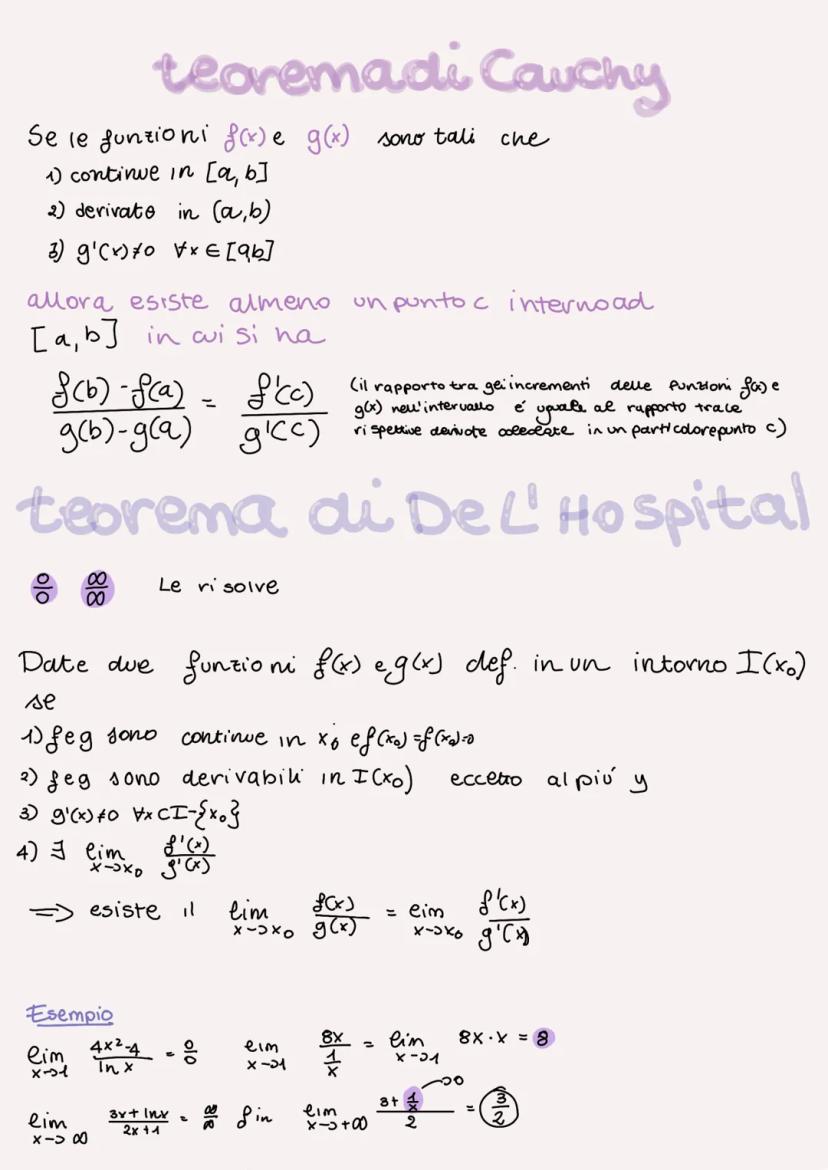 teorema di Cauchy
Se le funzioni f(x) e g(x) sono tali che
1) continue in [a, b]
2) derivate in (a,b)
3) g'(x)≠0 ∀x ∈ [a,b]
allora esiste almeno un punto c interno ad
[a,b] in cui si ha
f(b) - f(a) / g(b) - g(a) = f'(c) / g'(c)
(il rapporto tra gei incrementi delle funzioni f(x) e
g(x) nell'intervallo é uguale al rapporto tra le
rispettive derivate in un particolare punto c)
teorema di De L'Hospital
0/0 ∞/∞ Le risolve
Date due funzioni f(x) e g(x) def. in un intorno I(x₀)
se
1) f e g sono continue in x₀ e f(x₀)=f(x₀)=0
2) f e g sono derivabili in I(x₀) eccetto al piú y
3) g'(x)≠0 ∀x ⊂ I-{x₀}
4) ∃ lim x->x₀ f'(x)/g'(x)
=> esiste il lim x->x₀ f(x)/g(x) = lim x->x₀ f'(x)/g'(x)
Esempio
lim x->1 4x²-4 / ln x = 0/0 lim x->1 8x / 1/x = lim x->1 8x·x = 8
lim x->∞ 3x + lnx / 2x+1 = ∞/∞ lim x->+∞ 3+ 1/x / 2 = 3/2
->0